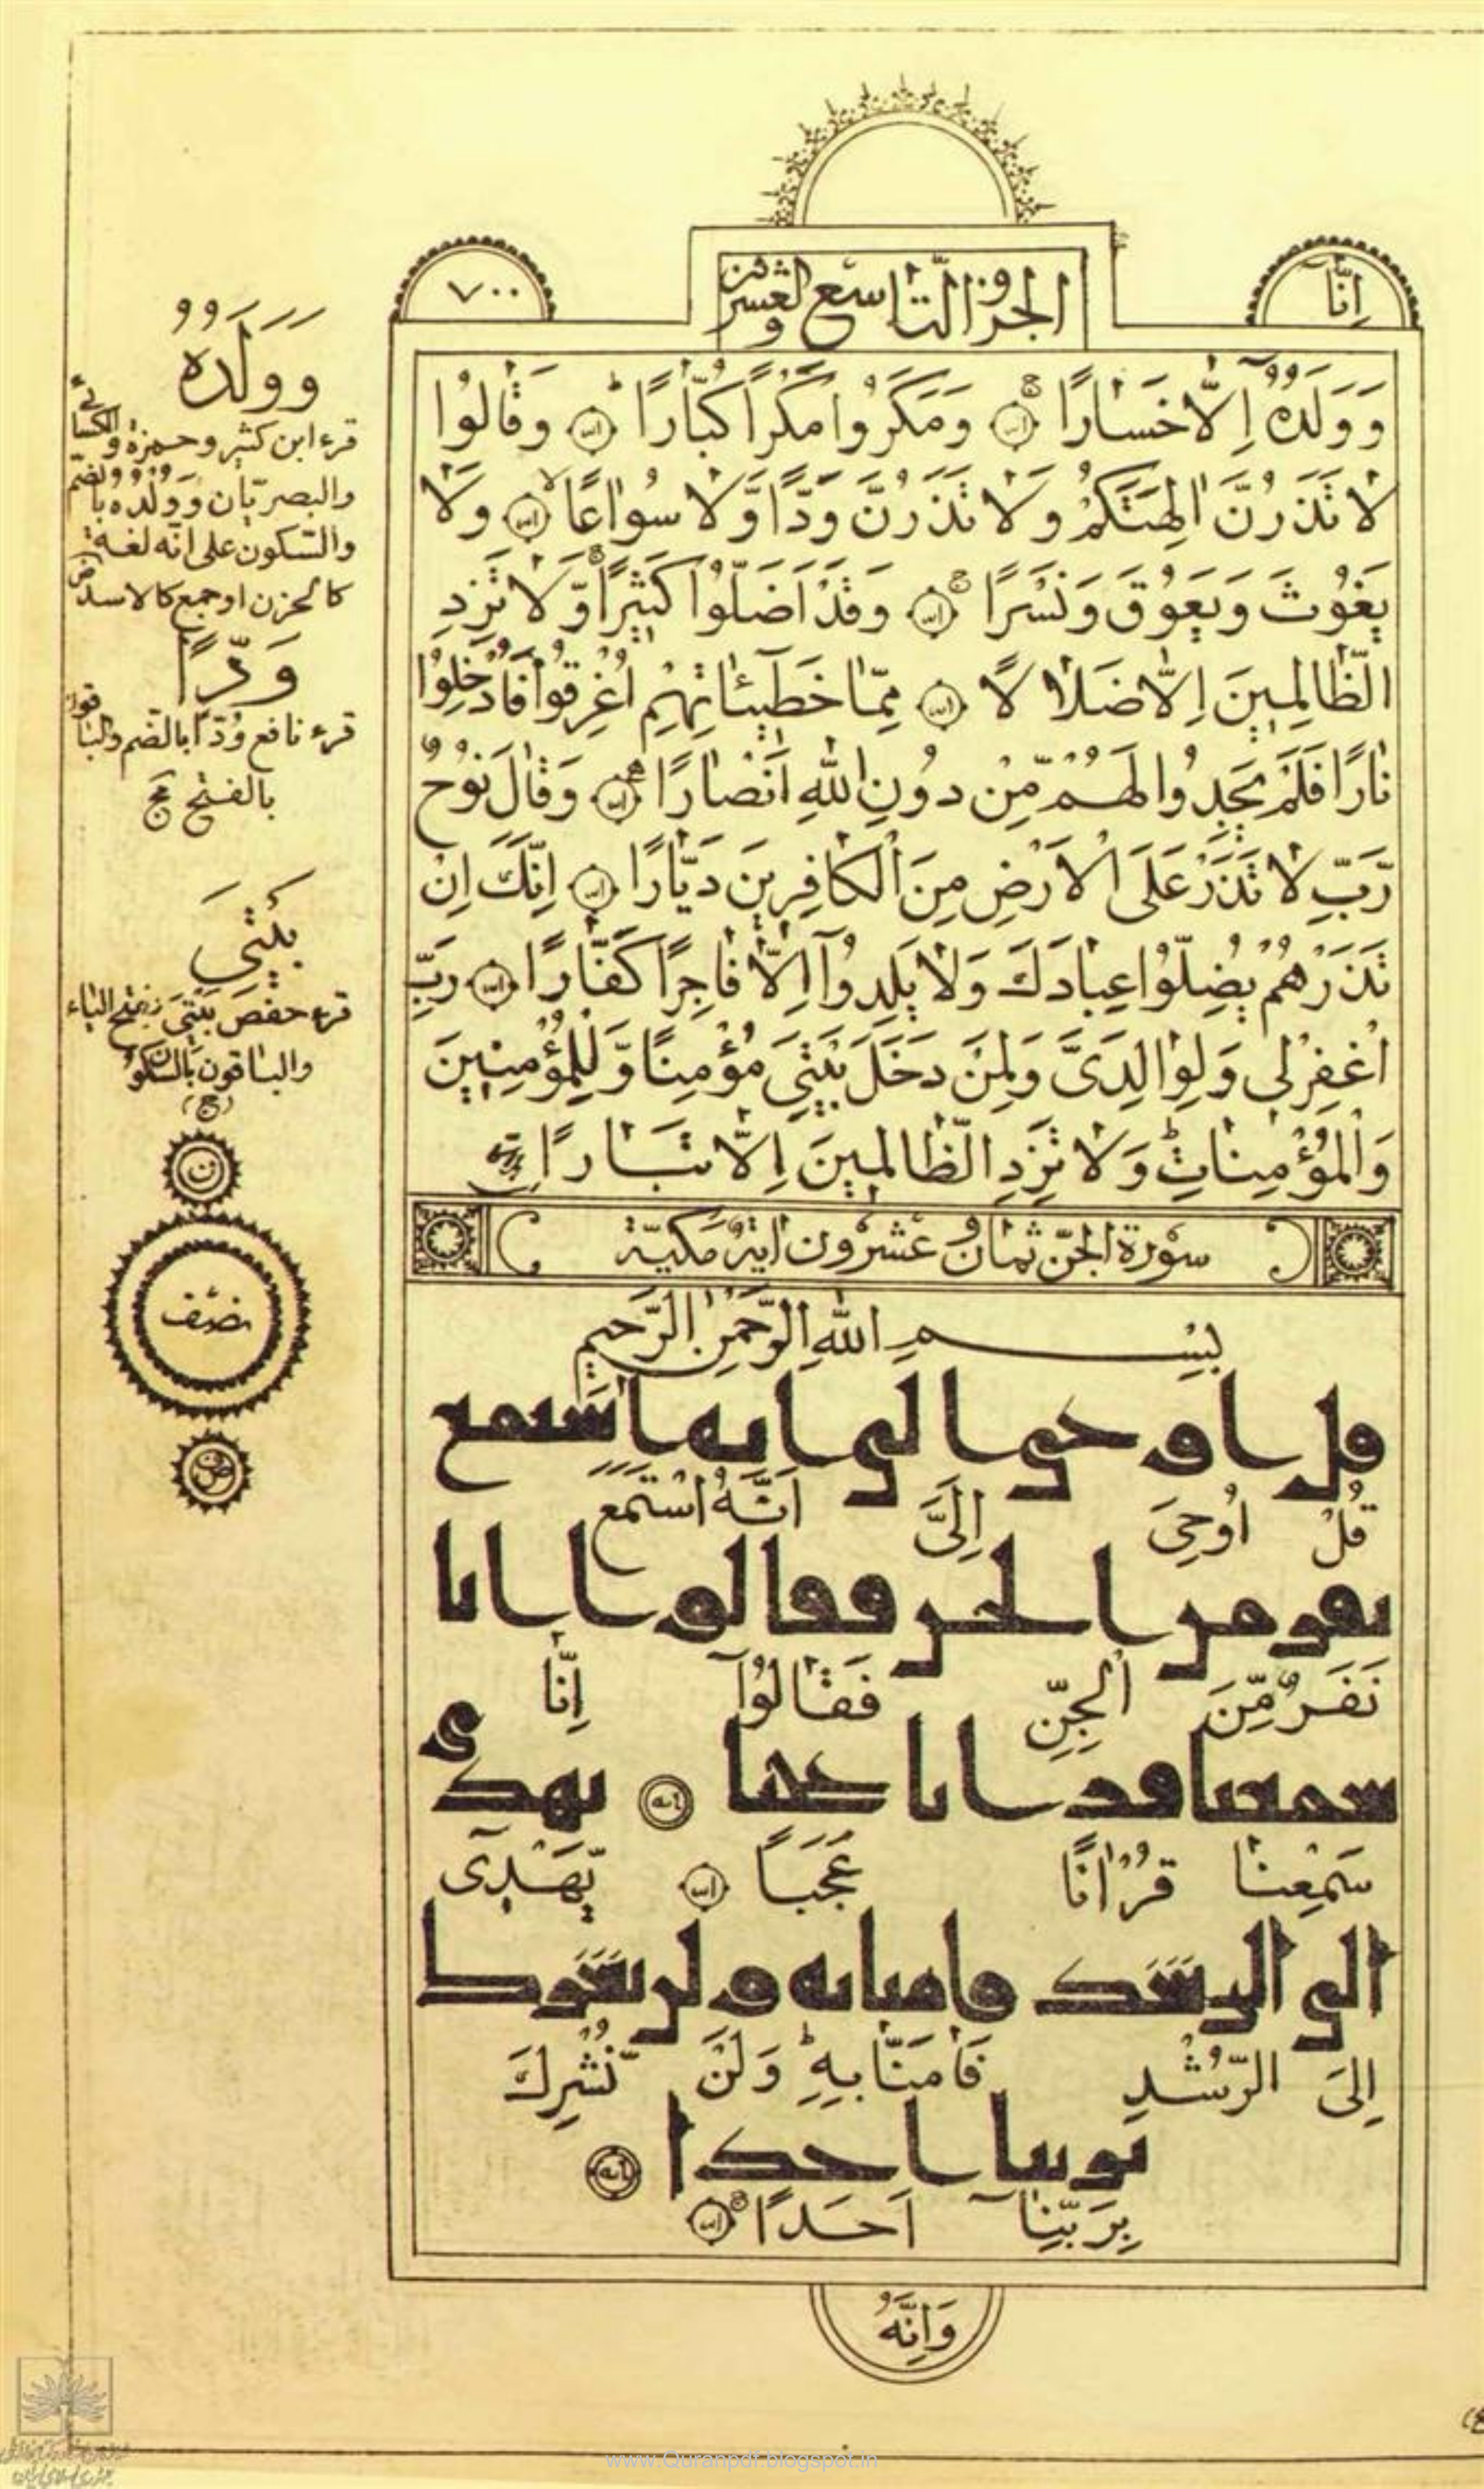 اِنَّا
الجزؤ التّاسع والعشرون
٧٠٠
وَوَلَدُهُ اِلَّا خَسَارًا وَمَكَرُوا مَكْرًا كُبَّارًا وَقَالُوا
لَا تَذَرُنَّ اٰلِهَتَكُمْ وَلَا تَذَرُنَّ وَدًّا وَّلَا سُوَاعًا وَلَا
يَغُوثَ وَيَعُوقَ وَنَسْرًا وَقَدْ اَضَلُّوا كَثِيرًا وَّلَا تَزِدِ
الظَّالِمِينَ اِلَّا ضَلَالًا مِمَّا خَطِيٓئَاتِهِمْ اُغْرِقُوا فَاُدْخِلُوا
نَارًا فَلَمْ يَجِدُوا لَهُمْ مِّنْ دُونِ اللّٰهِ اَنْصَارًا وَقَالَ نُوحٌ
رَّبِّ لَا تَذَرْ عَلَى الْاَرْضِ مِنَ الْكَافِرِينَ دَيَّارًا اِنَّكَ اِنْ
تَذَرْهُمْ يُضِلُّوا عِبَادَكَ وَلَا يَلِدُوٓا اِلَّا فَاجِرًا كَفَّارًا رَبِّ
اغْفِرْلِى وَلِوَالِدَىَّ وَلِمَنْ دَخَلَ بَيْتِىَ مُؤْمِنًا وَّلِلْمُؤْمِنِينَ
وَالْمُؤْمِنَاتِ وَلَا تَزِدِ الظَّالِمِينَ اِلَّا تَبَارًا
سورة الجنّ ثمان وعشرون اية مكيّة
بِسْمِ اللّٰهِ الرَّحْمٰنِ الرَّحِيمِ
قل اوحى الى انه استمع
قُلْ اُوحِىَ اِلَىَّ اَنَّهُ اسْتَمَعَ
نفر من الجن فقالوا انا
نَفَرٌ مِّنَ الْجِنِّ فَقَالُوٓا اِنَّا
سمعنا قرانا عجبا يهدى
سَمِعْنَا قُرْاٰنًا عَجَبًا يَّهْدِىٓ
الى الرشد فامنا به ولن نشرك
اِلَى الرُّشْدِ فَاٰمَنَّا بِهِ وَلَنْ نُّشْرِكَ
بربنا احدا
بِرَبِّنَآ اَحَدًا
وَاَنَّهُ
وَوَلَدُهُ
قرء ابن كثير وحمزة والكسائي
والبصريّان وَوُلْدُه بالضم
والسّكون على انّه لغة
كالحزن او جمع كالاسد
وَدًّا
قرء نافع وُدًّا بالضم والباقون
بالفتح
بَيْتِىَ
قرء حفص بَيْتِىَ بفتح الياء
والباقون بالسّكون
نصف
www.Quranpdf.blogspot.in